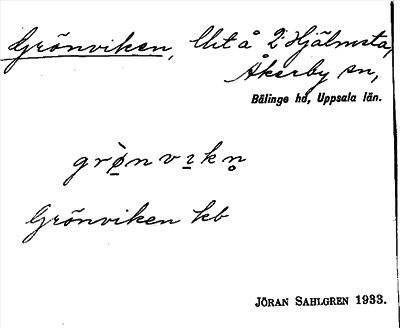 Grönviken, Utå 2 Hjälmsta,
Åkerby sn,
Bälinge hd, Uppsala län.
grø̀nvıkn̥
Grönviken kb
JÖRAN SAHLGREN 1933.